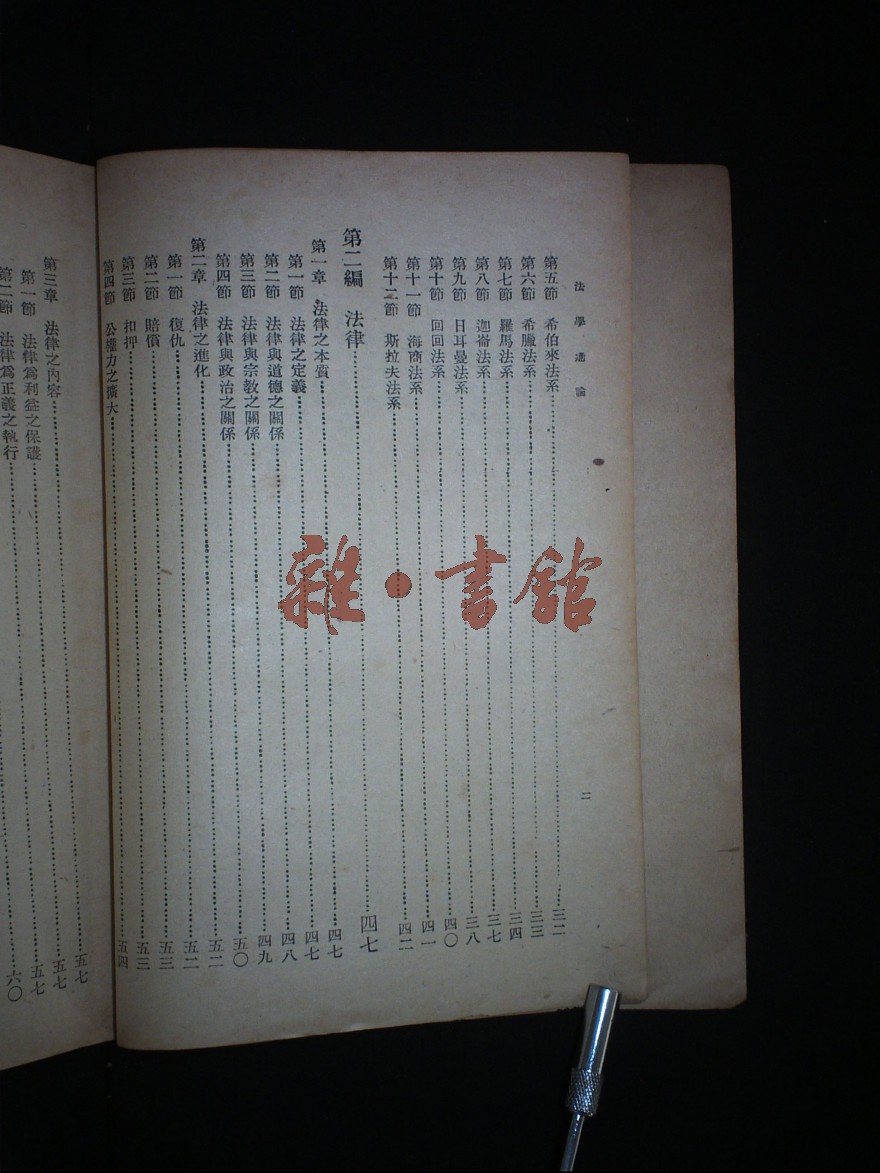 法學通論
二
第五節　希伯來法系……三二
第六節　希臘法系……三三
第七節　羅馬法系……三四
第八節　迦崙法系……三七
第九節　日耳曼法系……三八
第十節　回回法系……四〇
第十一節　海商法系……四一
第十二節　斯拉夫法系……四二
第二編　法律……四七
第一章　法律之本質……四七
第一節　法律之定義……四七
第二節　法律與道德之關係……四八
第三節　法律與宗教之關係……四九
第四節　法律與政治之關係……五〇
第二章　法律之進化……五二
第一節　復仇……五二
第二節　賠償……五三
第三節　扣押……五三
第四節　公權力之擴大……五四
第三章　法律之內容……五七
第一節　法律爲利益之保護……五七
第二節　法律爲正義之執行……五七
六〇
雜·書館